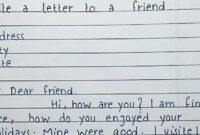 te a letter to a friend.
dress
ty
te
Dear friend.
Hi, how are you? I am fin
e, how do you enjoyed your
lidays. Mine were good. I visite